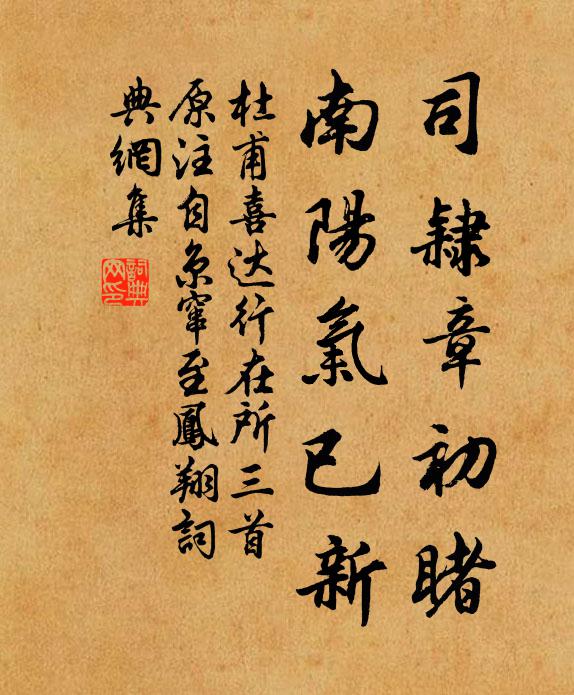 司隸章初睹
南陽氣已新
杜甫喜达行在所三首
原注自京窜至鳳翔詞
典網集
詞典
网印